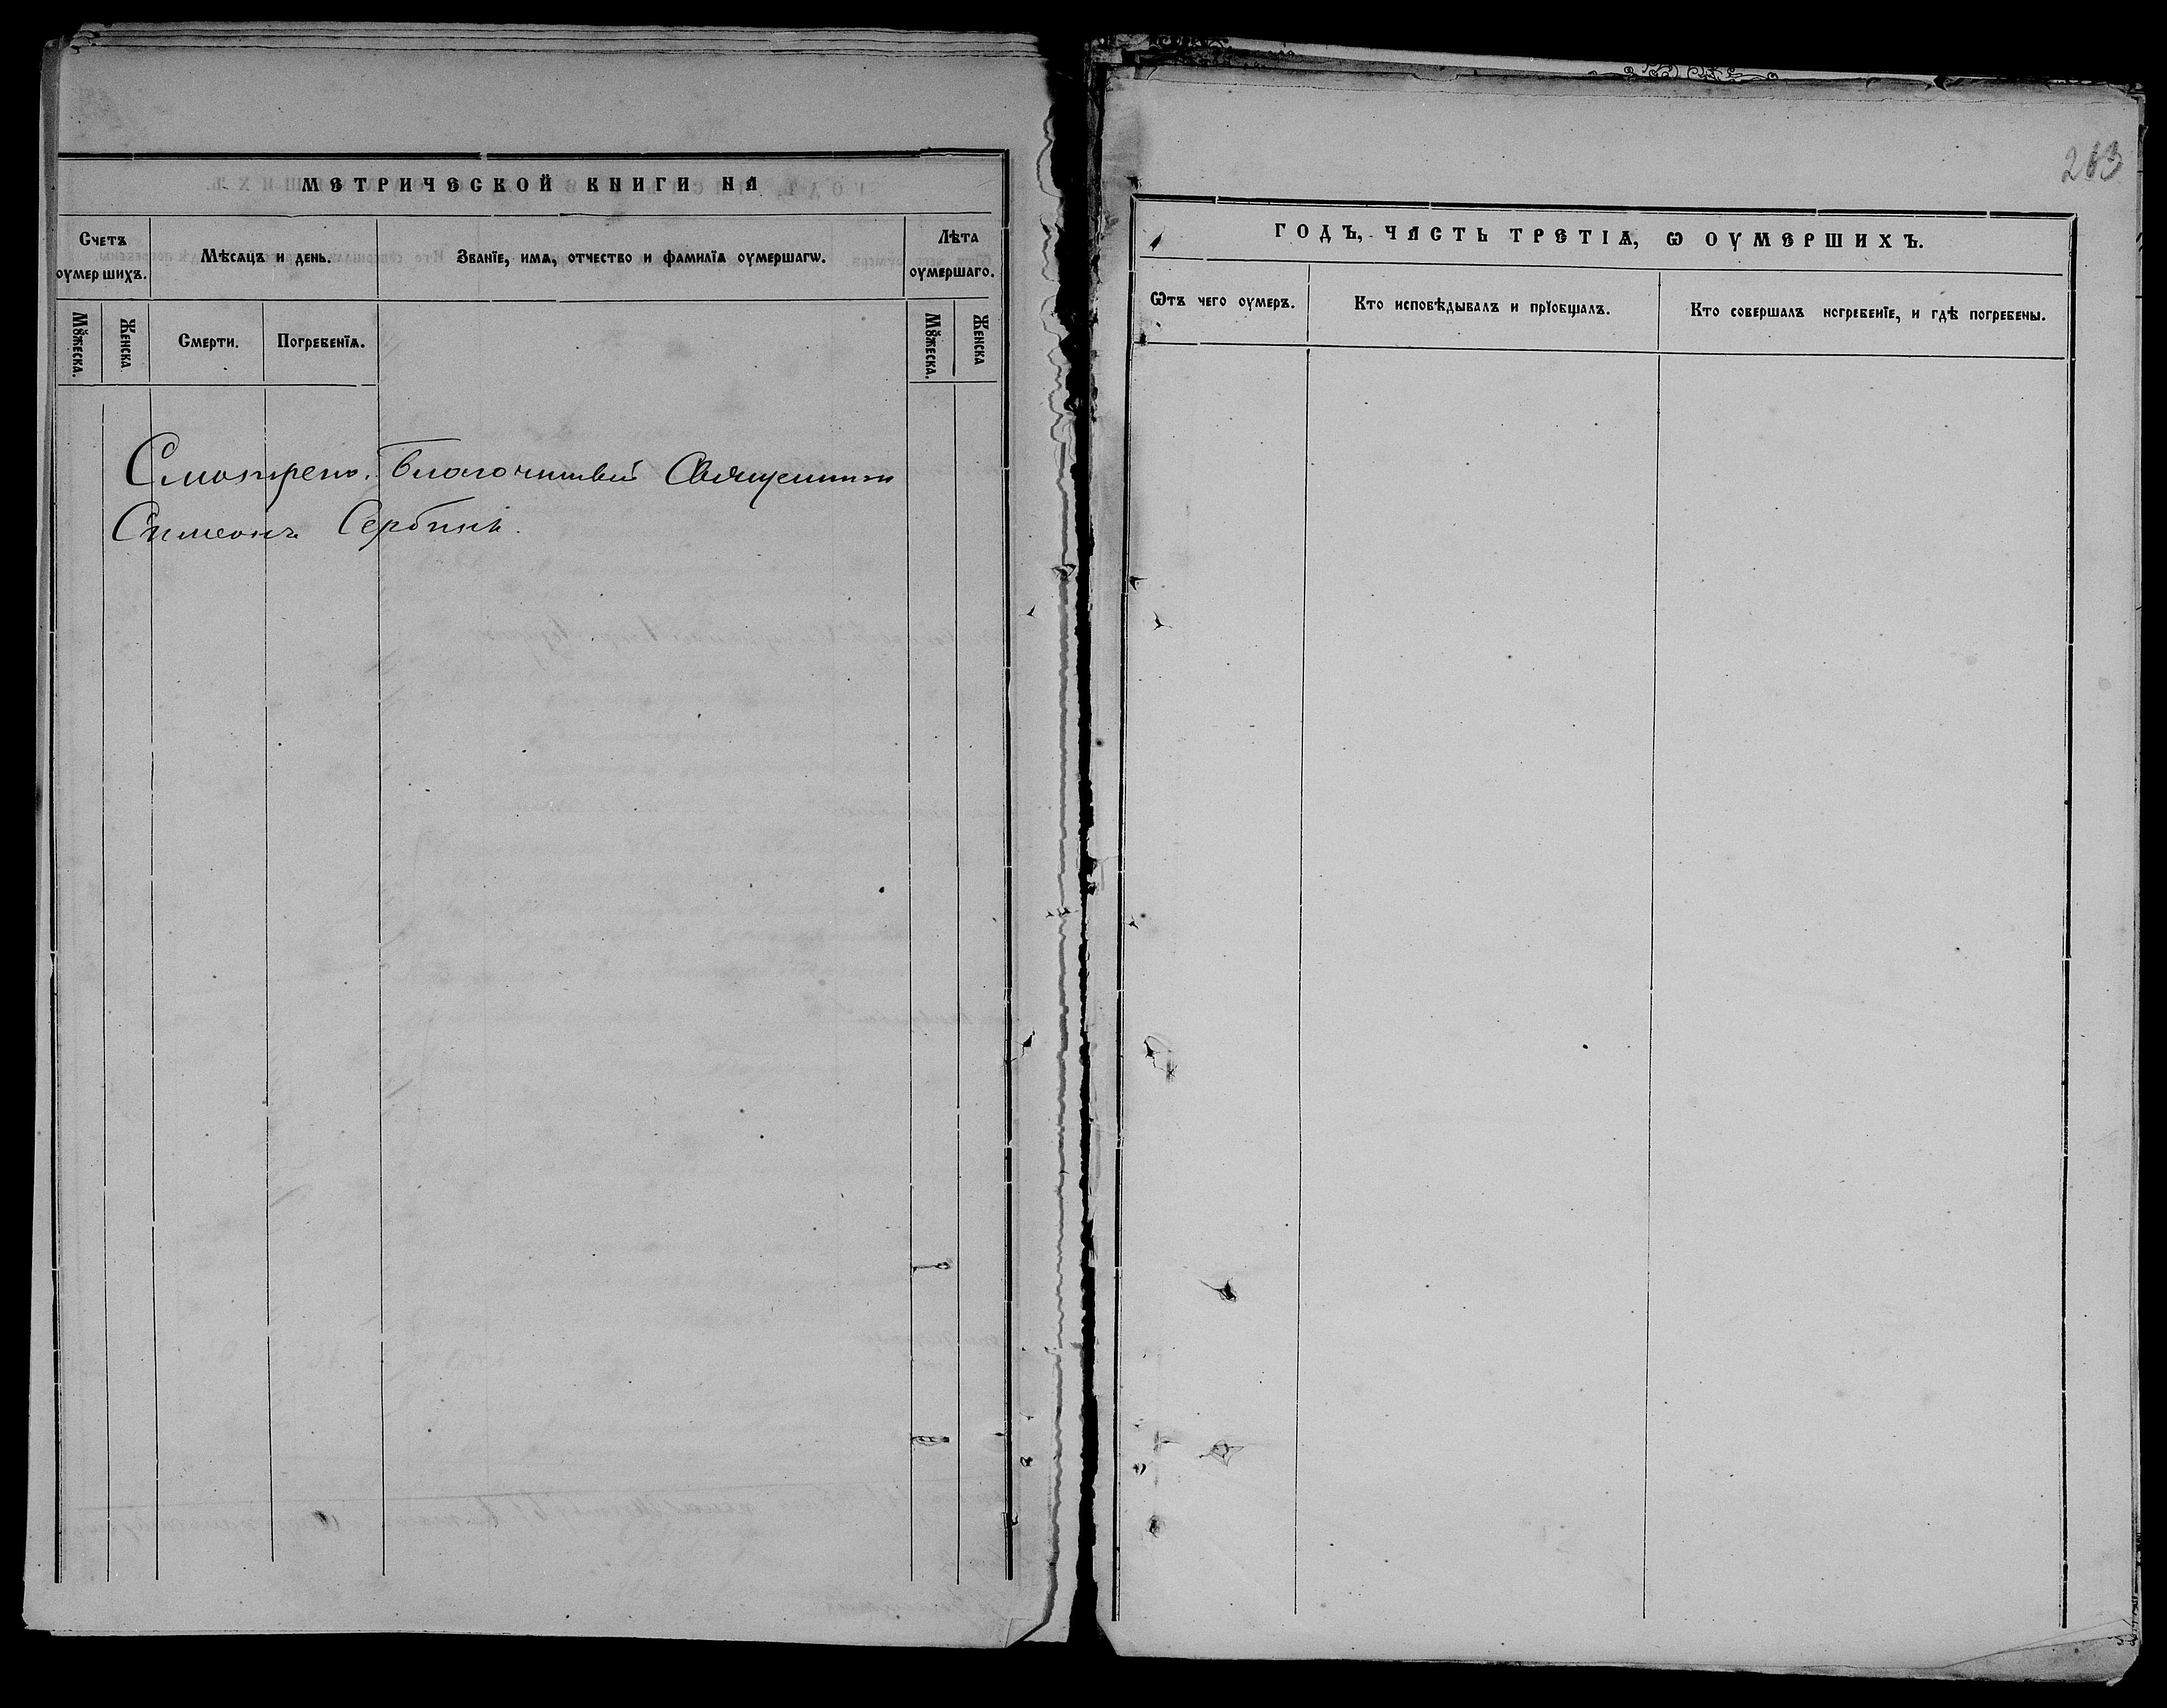 МЕТРИЧЕСКОЙ КНИГИ НА
Счетъ оумершихъ.
Мѣсѧцъ и день.
Званїе, имѧ, отчество и фамилїѧ оумершагѡ.
Лѣта оумершаго.
Мꙋжеска.
Женска
Смерти.
Погребенїѧ.
Мꙋжеска.
Женска
Смотрено. Благочинный Священникъ
Симеонъ Сербинъ.
263
ГОДЪ, ЧАСТЬ ТРЕТІѦ, Ѡ ОУМЕРШИХЪ.
Ѿтъ чего оумеръ.
Кто исповѣдывалъ и прїобщалъ.
Кто совершалъ погребенїе, и гдѣ погребены.